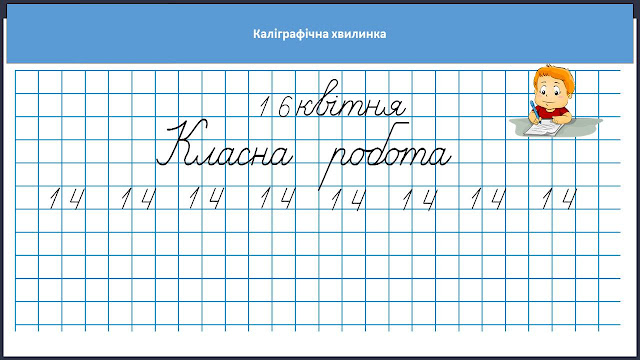 Каліграфічна хвилинка
16 квітня
Класна робота
14 14 14 14 14 14 14 14